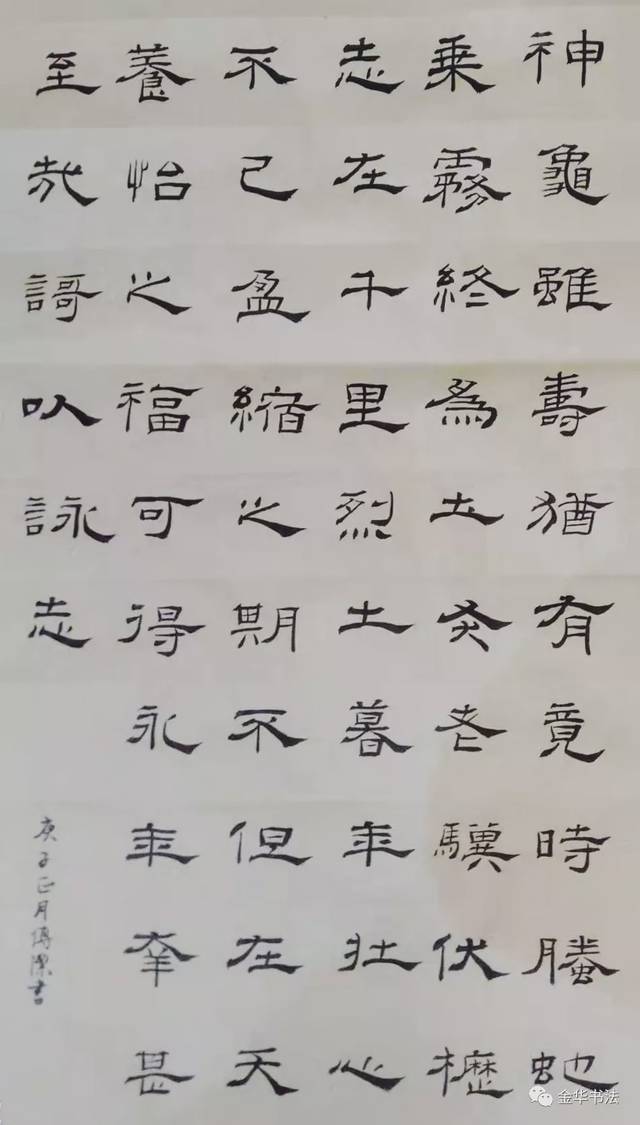 神龜雖壽猶有竟時螣虵
乗霧終為土灰老驥伏櫪
志在千里烈士暮年壯心
不已盈縮之期不但在天
養怡之福可得永年幸甚
至哉謌以詠志
庚子正月傅書
金华书法